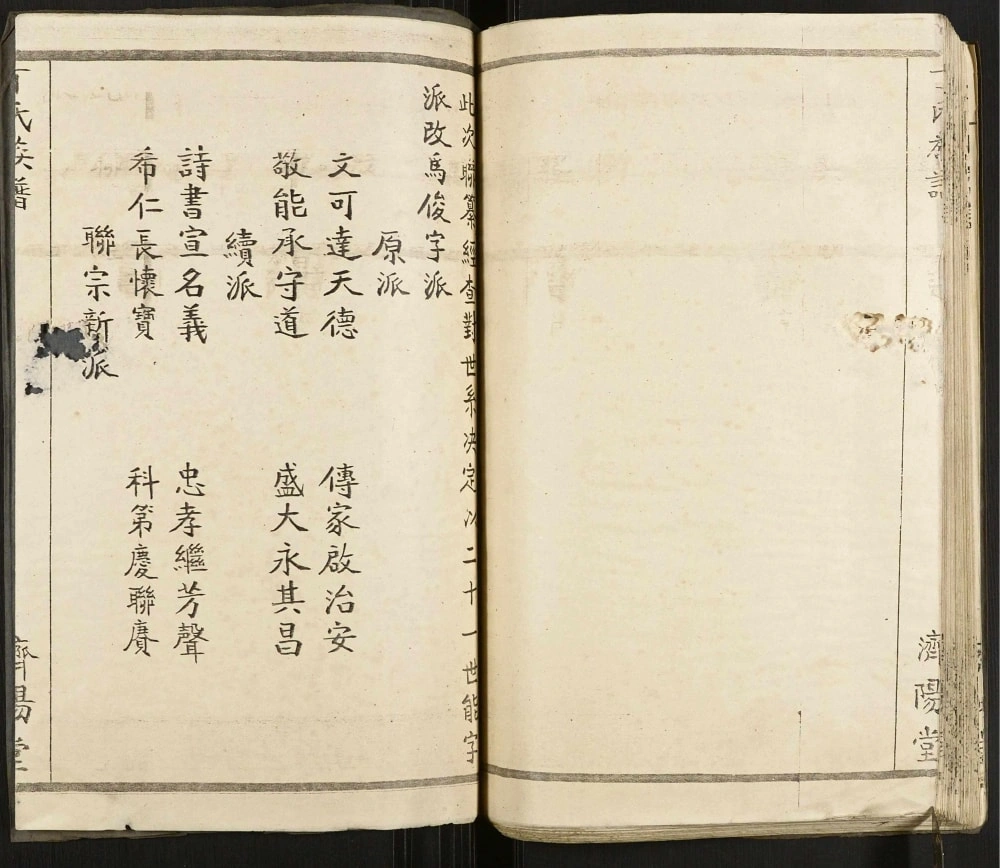 氏
濟陽堂
此次聯纂經查對世系决定以二十一世能字
派改爲俊字派
原派
文可達天德 傳家啟治安
敬能承守道 盛大永其昌
續派
詩書宣名義 忠孝繼芳聲
希仁長懷寶 科第慶聯賡
聯宗新派
氏族譜
濟陽堂